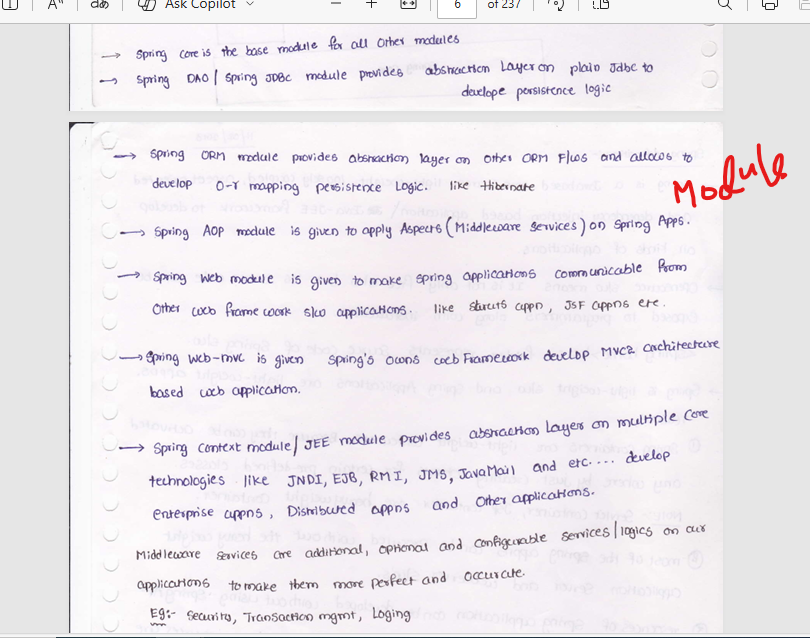 Ask Copilot
6 of 237
→ Spring core is the base module for all other modules
→ Spring DAO / Spring JDBC module provides abstraction Layer on plain Jdbc to
develope persistence logic
→ Spring ORM module provides abstraction layer on other ORM F/ws and allows to
develop O-r mapping persistence Logic. like Hibernate
Module
→ Spring AOP module is given to apply Aspects (Middleware services) on Spring Apps.
→ Spring Web module is given to make spring applications communicable from
Other web frame work s/w applications. like struts appn, JSF appns etc.
→ Spring web-mvc is given spring's owns web Framework develop MVC2 architecture
based web application.
→ Spring Context module / JEE module provides abstraction Layer on multiple core
technologies like JNDI, EJB, RMI, JMS, JavaMail and etc.... develop
enterprise appns, Distributed appns and Other applications.
Middleware services are additional, optional and configurable services / logics on our
applications to make them more perfect and accurate.
Eg:- Security, Transaction mgmt, Loging